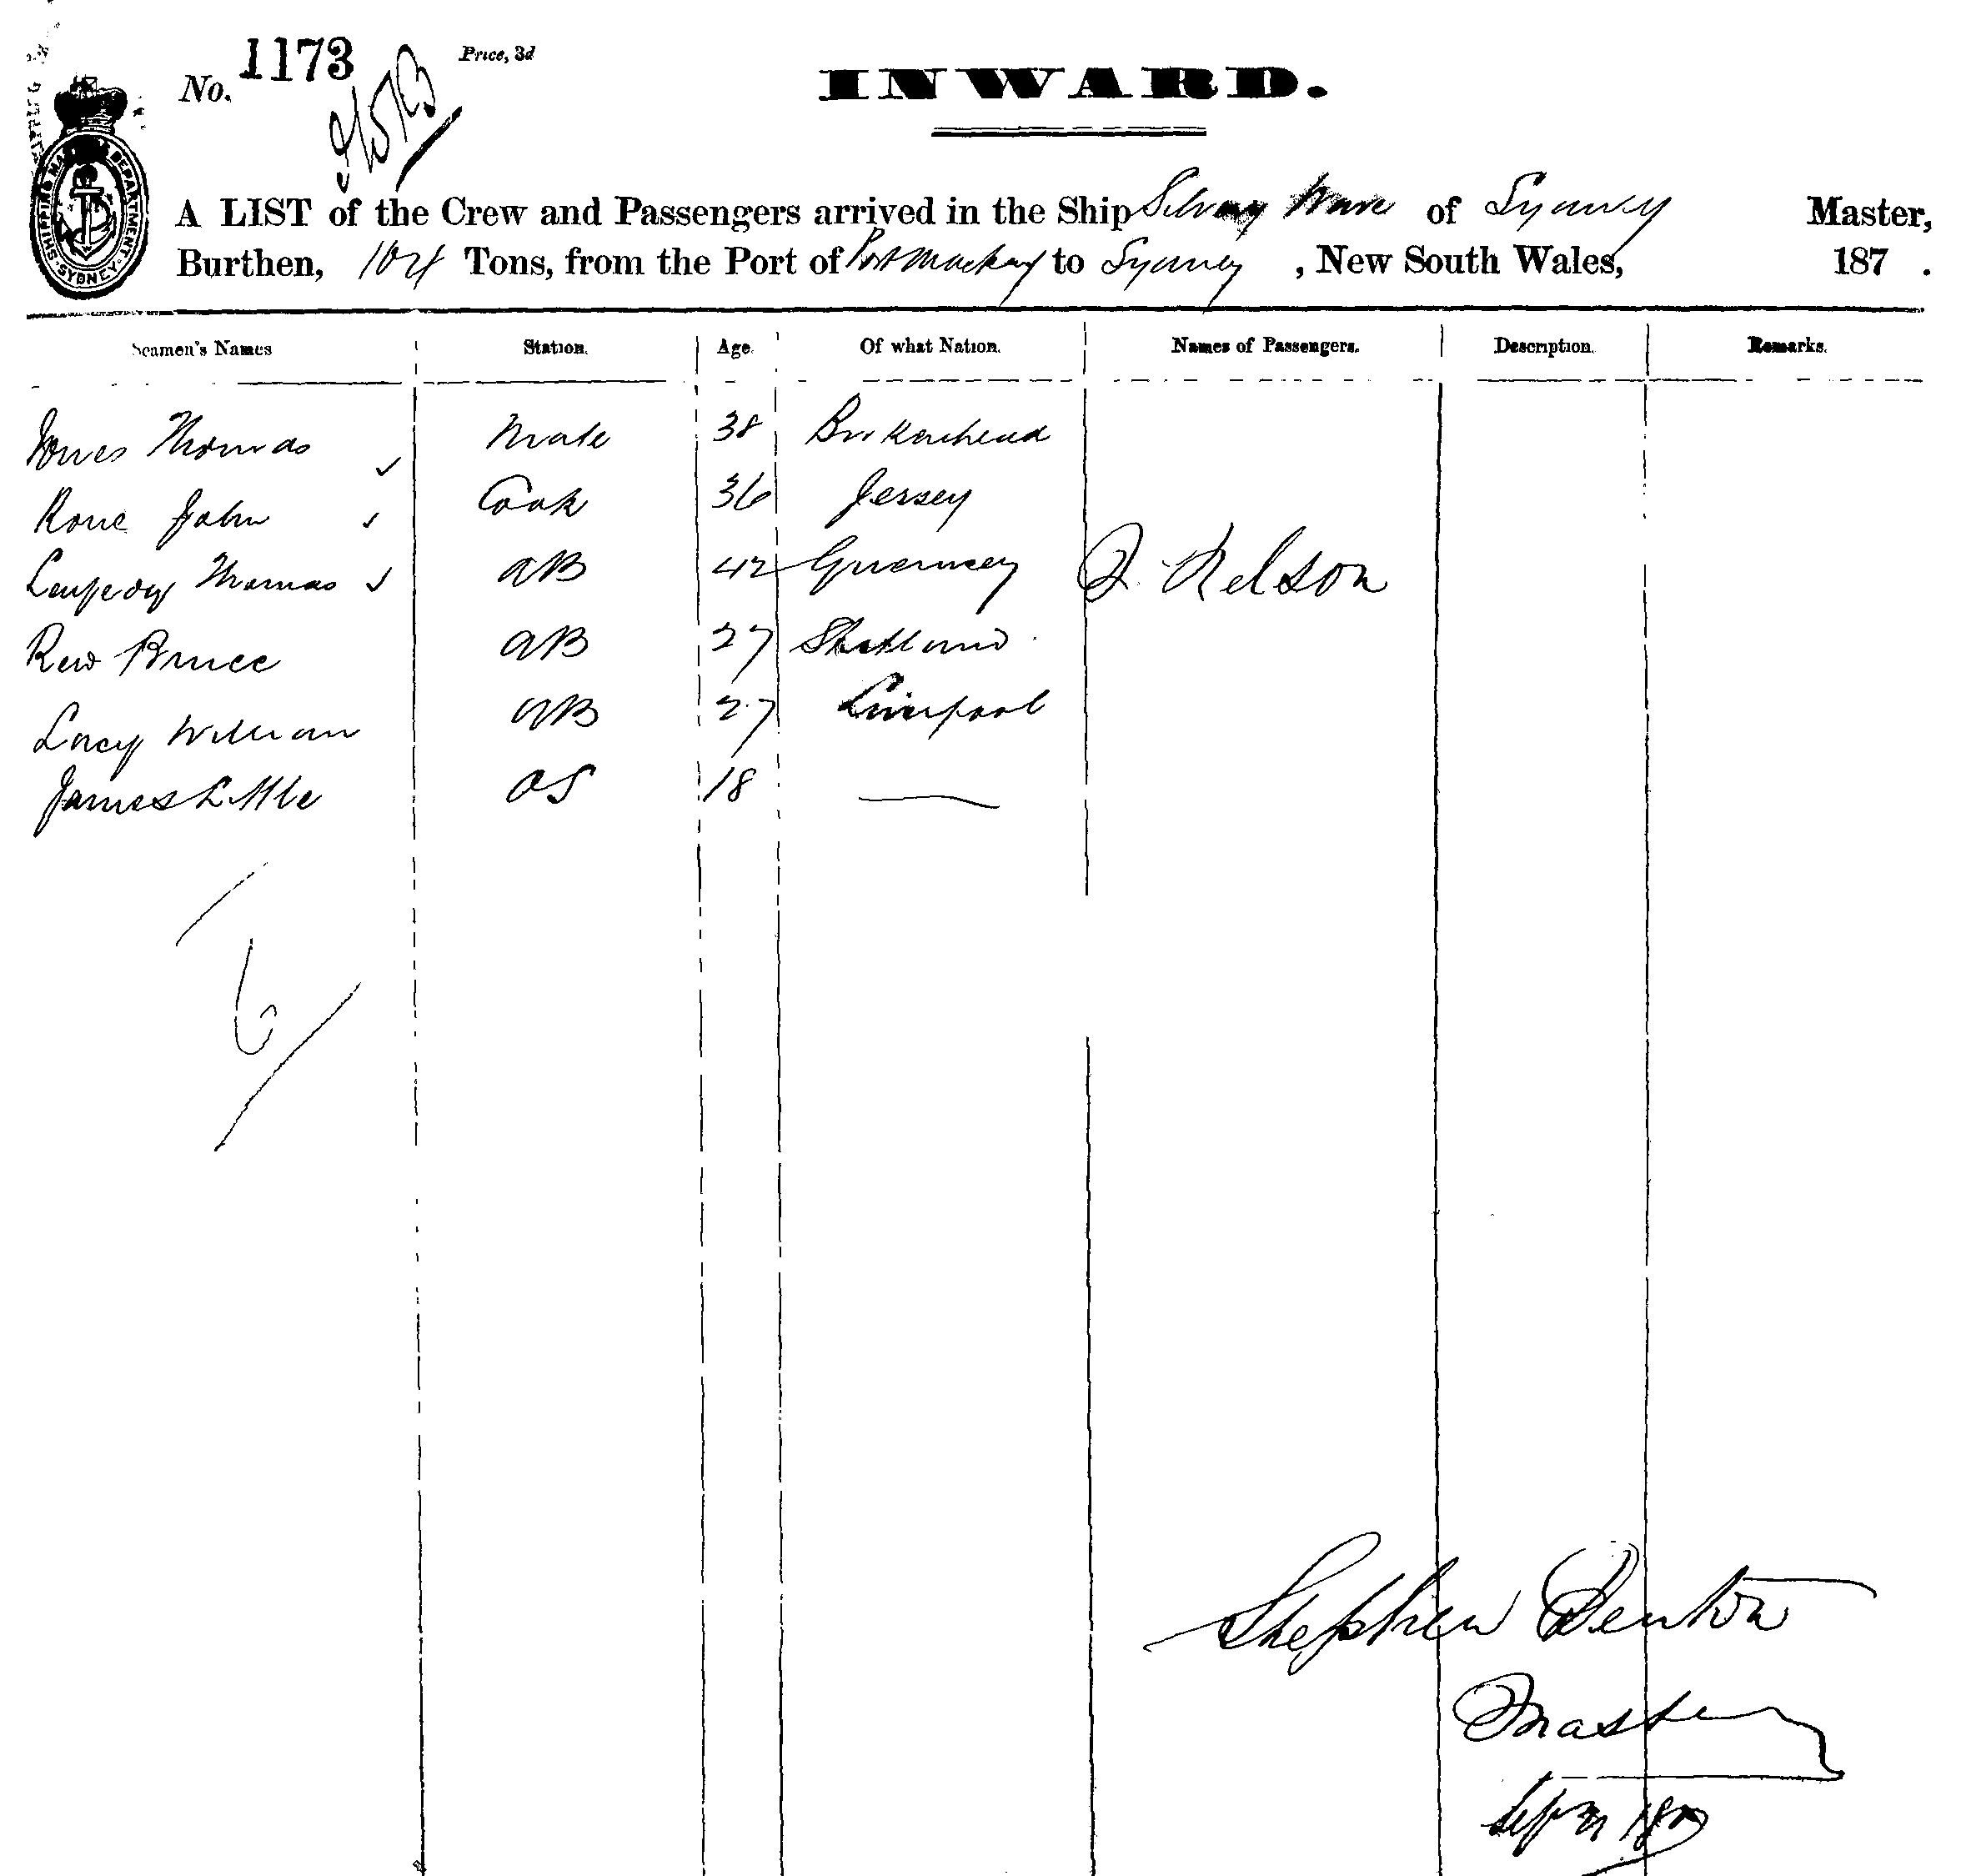 No. 1173 Price, 3d
INWARD.
SHIPPING MASTER'S DEPARTMENT SYDNEY
A LIST of the Crew and Passengers arrived in the Ship Silvery Wave of Sydney Master,
Burthen, 104 Tons, from the Port of Port Mackay to Sydney, New South Wales, 187 .
Seamen's Names Station. Age. Of what Nation. Names of Passengers. Description. Remarks.
Jones Thomas Mate 38 Birkenhead
Rone John Cook 36 Jersey
Thomas AB 42 Guernsey J. Nelson
Rew Bruce AB 27 Shetland
Lacy William AB 27 Liverpool
James Little OS 18 —
6
Stephen Denton
Master
Sept